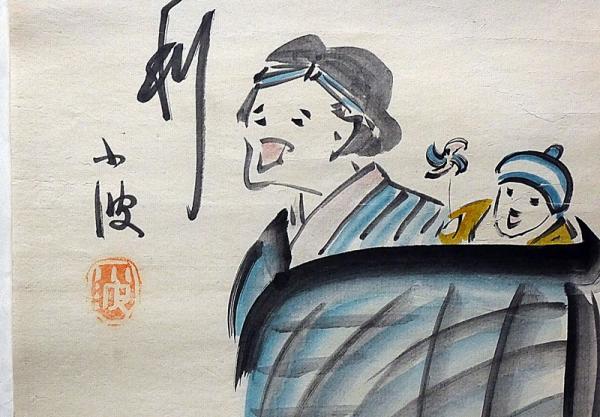 利
小波